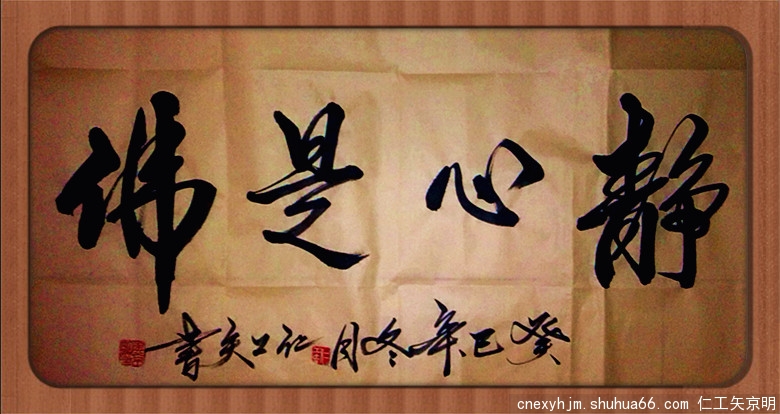 静心是佛
癸巳年冬月仁工矢书
cnexyhjm.shuhua66.com 仁工矢京明